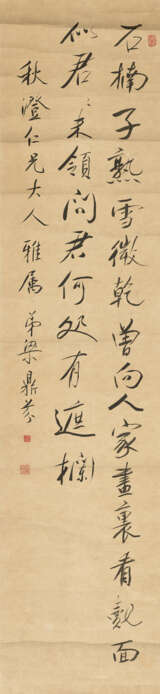 石楠子熟雪微乾曾向人家畫裏看覿面
似君君未領問君何処有遮欄
秋澄仁兄大人雅属 弟梁鼎芬